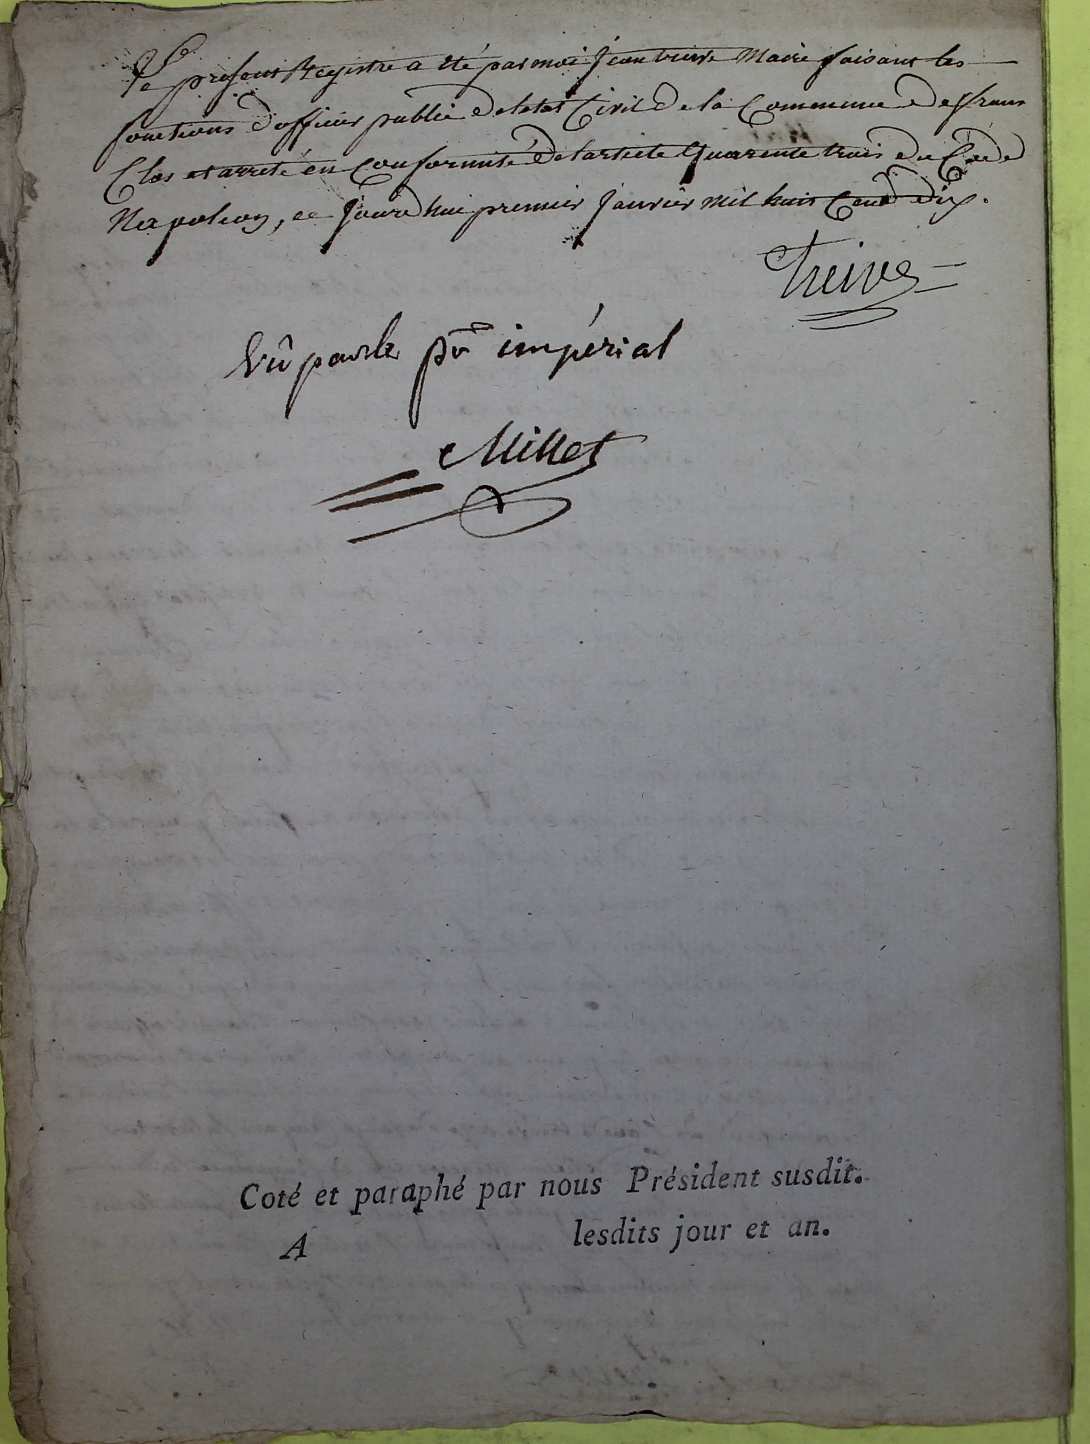 Le present Registre a été par moi Jean treive Maire faisant les
fonctions d'officier public de letat Civil de la Commune de
Clos et arreté en Conformité de l'article Quarente trois du Code
Napoleon, ce jourd'hui premier janvier mil huit Cent dix.
Treive
Vû par le pr impérial
Millet
Coté et paraphé par nous Président susdit.
A lesdits jour et an.